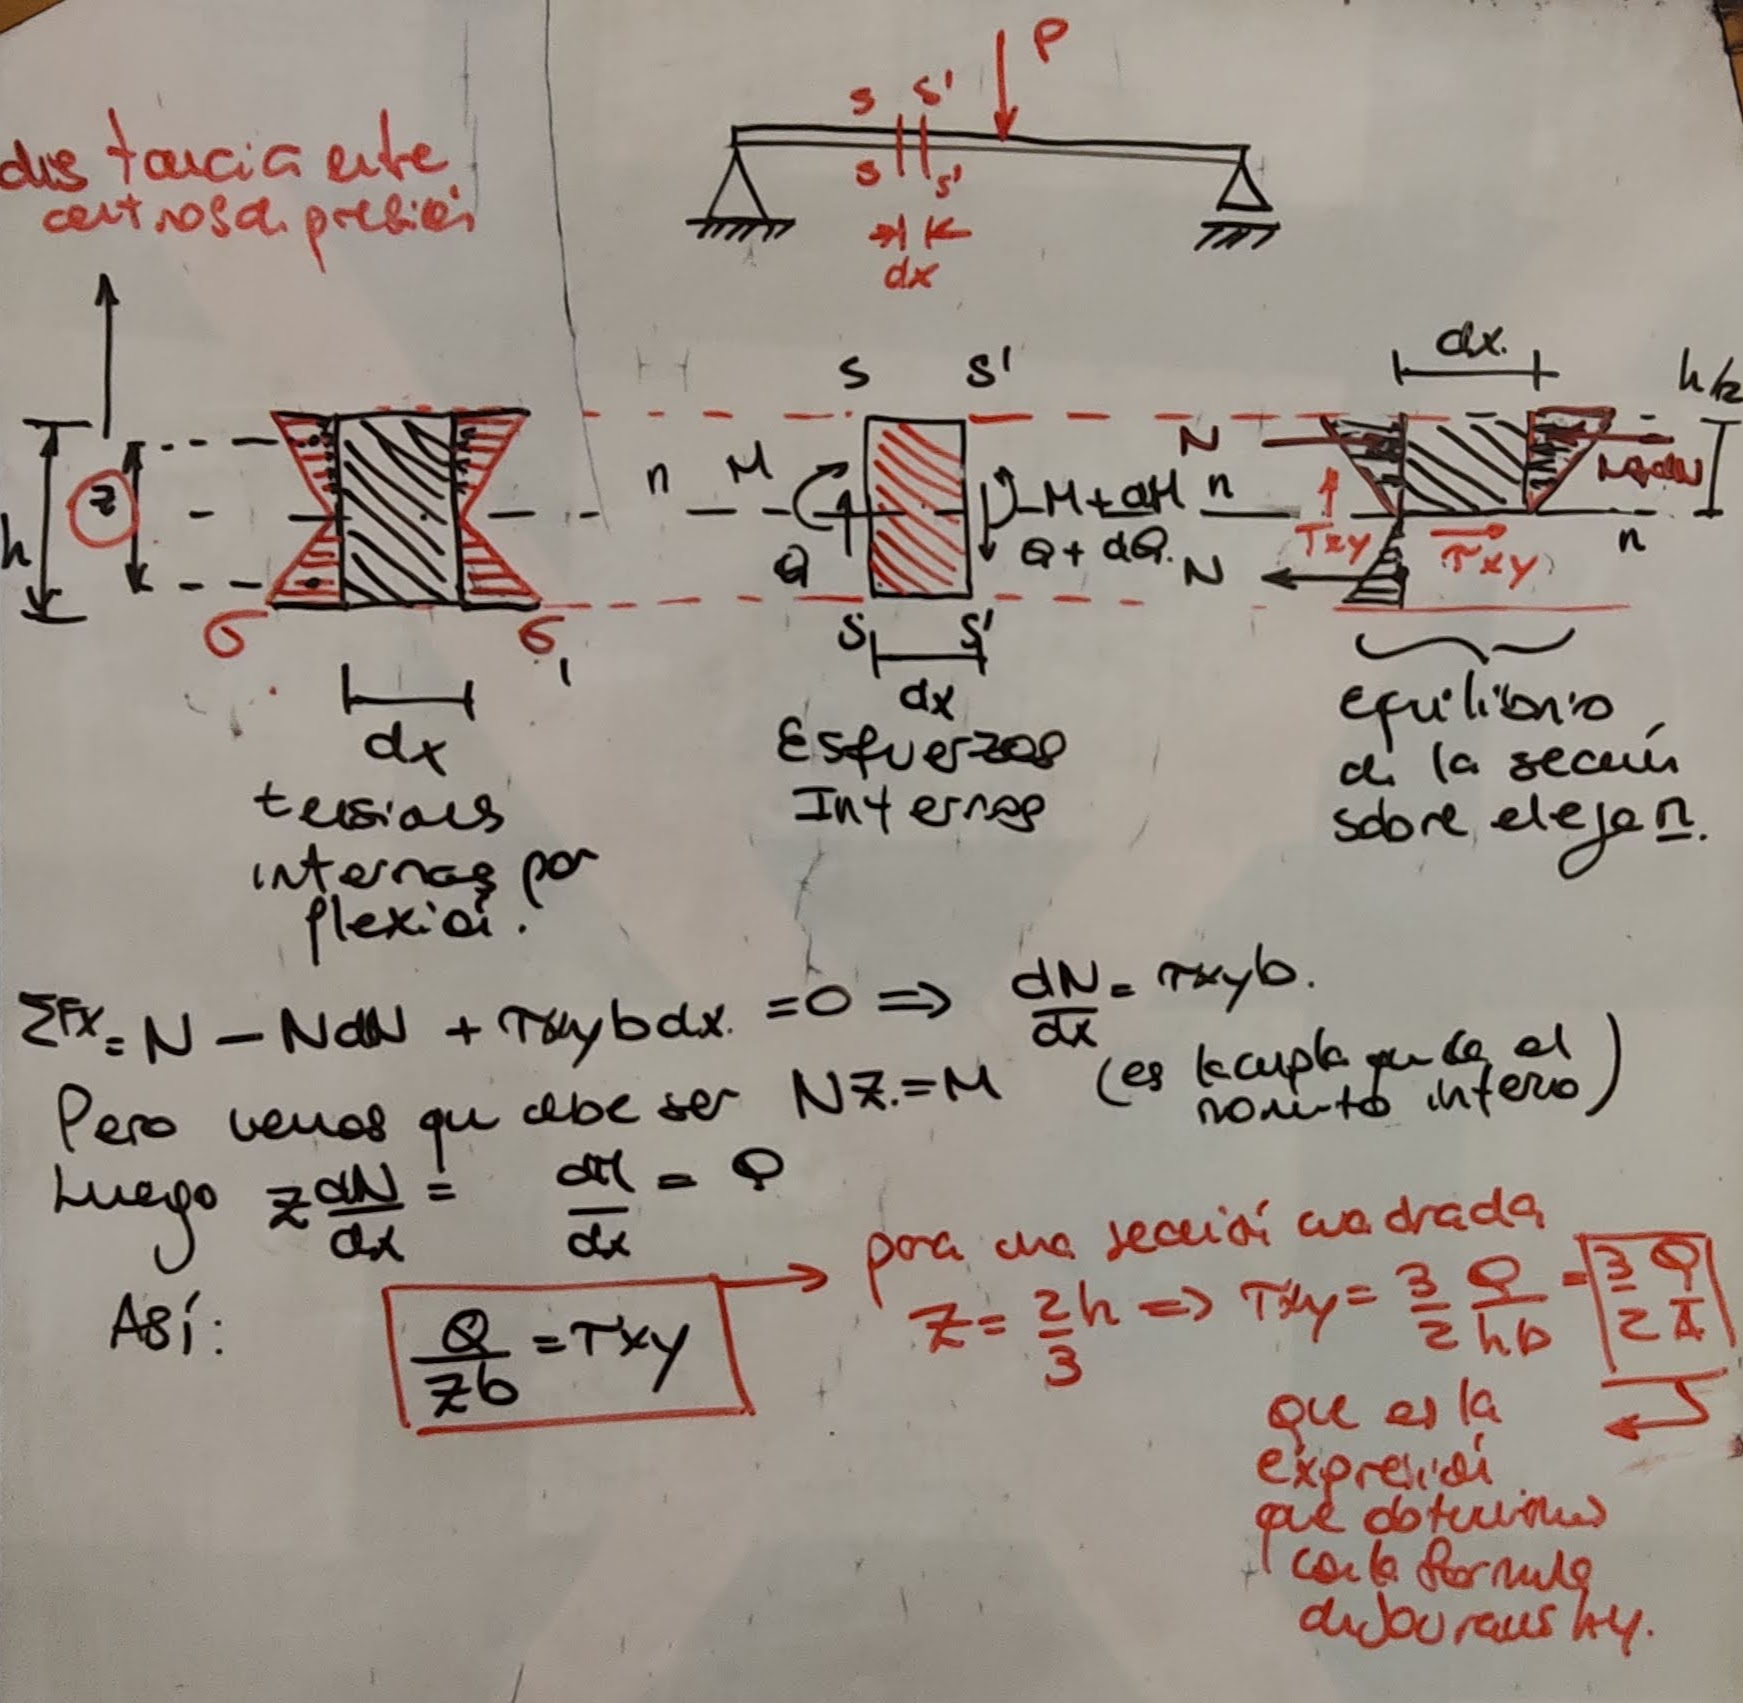 P
S S'
S S'
dx
distancia entre
centros de presión
h
z
σ
σ₁
dx
tensiones
internas por
flexión.
S S'
n
M
Q
M + dM
Q + dQ.
S S'
dx
Esfuerzos
Internos
dx.
h/2
N
n
N+dN
τxy
τxy
n
N
equilibrio
de la sección
sobre el eje n.
ΣFx = N - NdN + τxy b dx. = 0 ⇒ dN/dx = τxy b.
Pero vemos que debe ser Nz. = M (es la cupla que da el
momento interno)
Luego z dN/dx = dM/dx = Q
Así: Q/zb = τxy
para una sección cuadrada
z = 2/3 h ⇒ τxy = 3/2 Q/hb = 3/2 Q/A
que es la
expresión
que obtuvimos
con la formula
de Jouraushky.